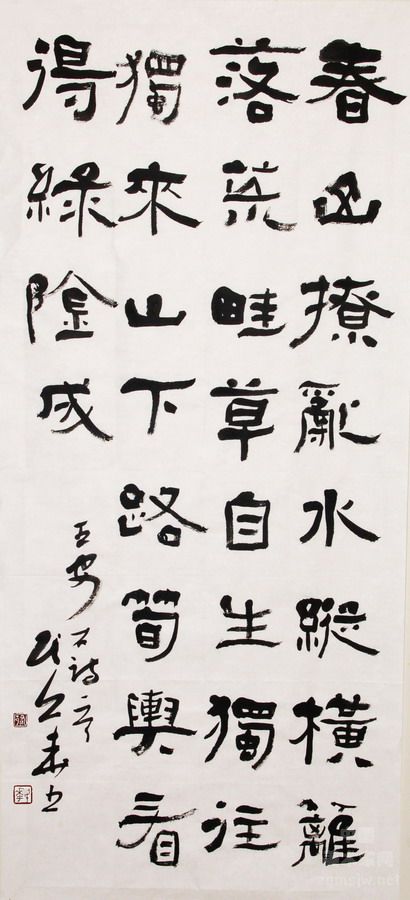 春山撩亂水縱橫籬
落荒畦草自生獨往
獨來山下路筍輿看
得綠陰成
王安石詩一首